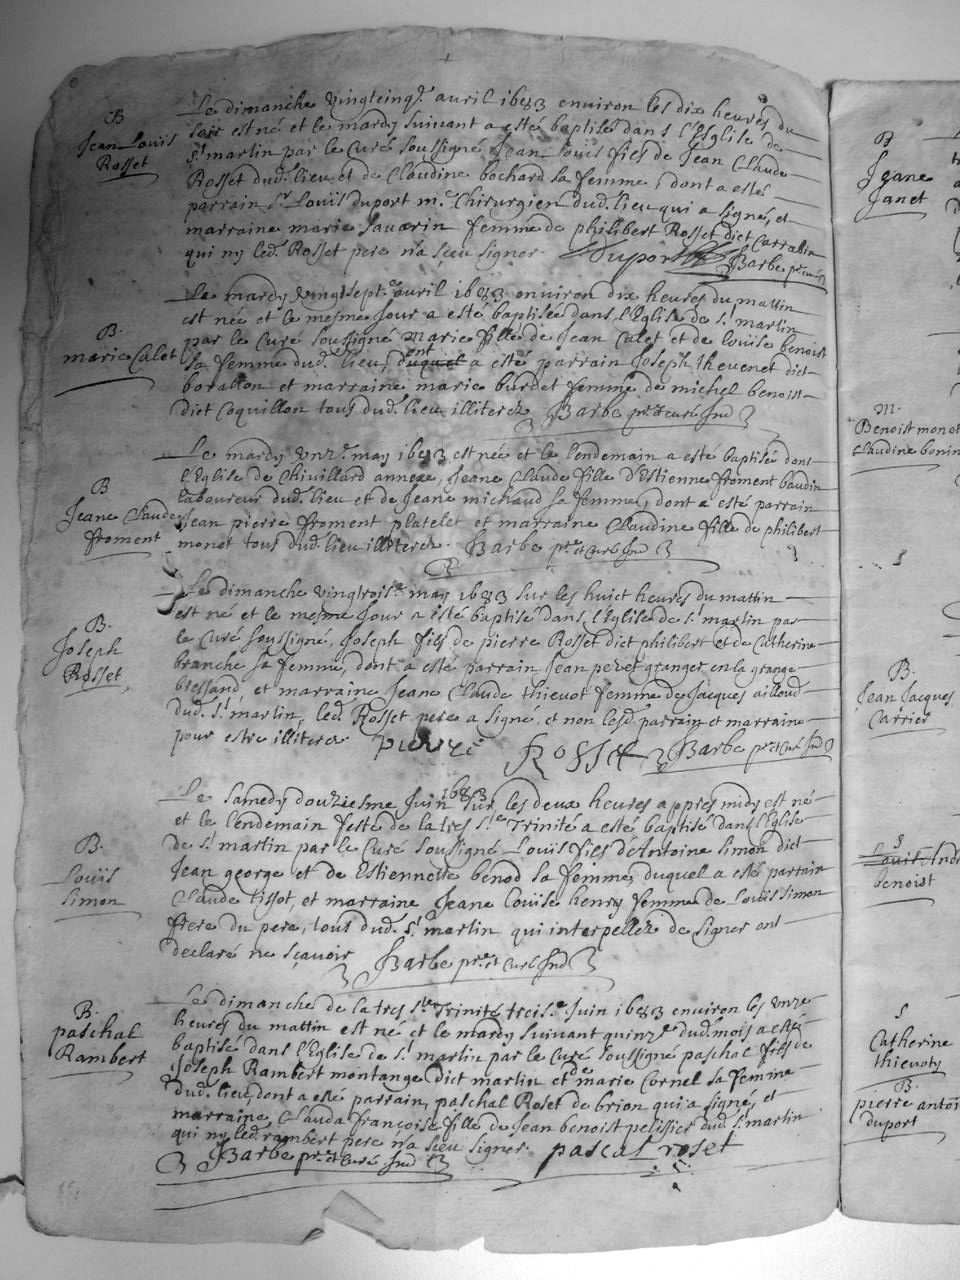 B
Jean Louis
Rosset
Le dimanche vingtcinq.e avril 1683 environ les dix heures du
soir est né et le mardy suivant a esté baptisé dans l'Eglise de
S.t martin par le Curé soussigné Jean Louis fils de Jean Claude
Rosset dud. lieu et de Claudine bochard sa femme, dont a esté
parrain S.r Louis duport m.e Chirurgien dud. lieu qui a signé, et
marraine marie savarin femme de philibert Rosset dict Carrabin
qui ny led. Rosset pere n'a sceu signer. Duport Barbe p.r curé
B.
marie Calet
Le mardy vingtsept.e avril 1683 environ dix heures du mattin
est née et le mesme Jour a esté baptisée dans l'Eglise de S.t martin
par le Curé soussigné marie fille de Jean Calet et de louise benoist
sa femme dud. lieu, dont a esté parrain Joseph thevenet dict
boratton et marraine marie burdet femme de michel benoist
dict Coquillon tous dud. lieu illiterez Barbe p.r et curé Ind
B
Jeane Claude
froment
Le mardy unz.e may 1683 est née et le lendemain a esté baptisée dans
l'Eglise de Chivillard annexe, Jeane Claude fille d'Estienne froment baudin
laboureur dud. lieu et de Jeane michaud sa femme, dont a esté parrain
Jean pierre froment platelet et marraine Claudine fille de philibert
monet tous dud. lieu illiterez. Barbe p.r et Curé Ind
B.
Joseph
Rosset
Le dimanche vingtrois.e may 1683 sur les huict heures du mattin
est né et le mesme Jour a esté baptisé dans l'Eglise de S.t martin par
le Curé soussigné, Joseph fils de pierre Rosset dict philibert et de Catherine
branche sa femme, dont a esté parrain Jean peret granger en la grange
bressand, et marraine Jeane Claude thievot femme de Jacques ailloud
dud. S.t martin, led. Rosset pere a signé, et non lesd. parrain et marraine
pour estre illiterez pierre ROSSEt Barbe p.r et Curé Ind
B.
Loüis
Simon
Le samedy douziesme Juin 1683 sur les deux heures appres midy est né
et le lendemain feste de la tres S.te Trinité a esté baptisé dans l'Eglise
de S.t martin par le Curé soussigné Louis fils d'Antoine simon dict
Jean george et de Estiennette benod sa femme, duquel a esté parrain
Claude tissot, et marraine Jeane Louise henry femme de Louis simon
frere du pere, tous dud. S.t martin qui interpellez de signer ont
declaré ne sçavoir Barbe p.r et Curé Ind
B.
paschal
Rambert
Le dimanche de la tres S.te Trinité treis.e Juin 1683 environ les unze
heures du mattin est né et le mardy suivant quinz.e dud. mois a esté
baptisé dans l'Eglise de S.t martin par le Curé soussigné paschal fils de
Joseph Rambert montange dict martin et de marie Cornel sa femme
dud. lieu, dont a esté parrain, paschal Roset de brion qui a signé, et
marraine, Clauda françoise fille de Jean benoist pelissier dud. S.t martin
qui ny led. rambert pere n'a sceu signer. pascal roset
Barbe p.r et Curé Ind
B
Jeane
Janet
M.
Benoist monet
Claudine bonin
S
B.
Jean Jacques
Carrier
S
benoist
S
Catherine
thievoty
B.
pierre antoi
duport